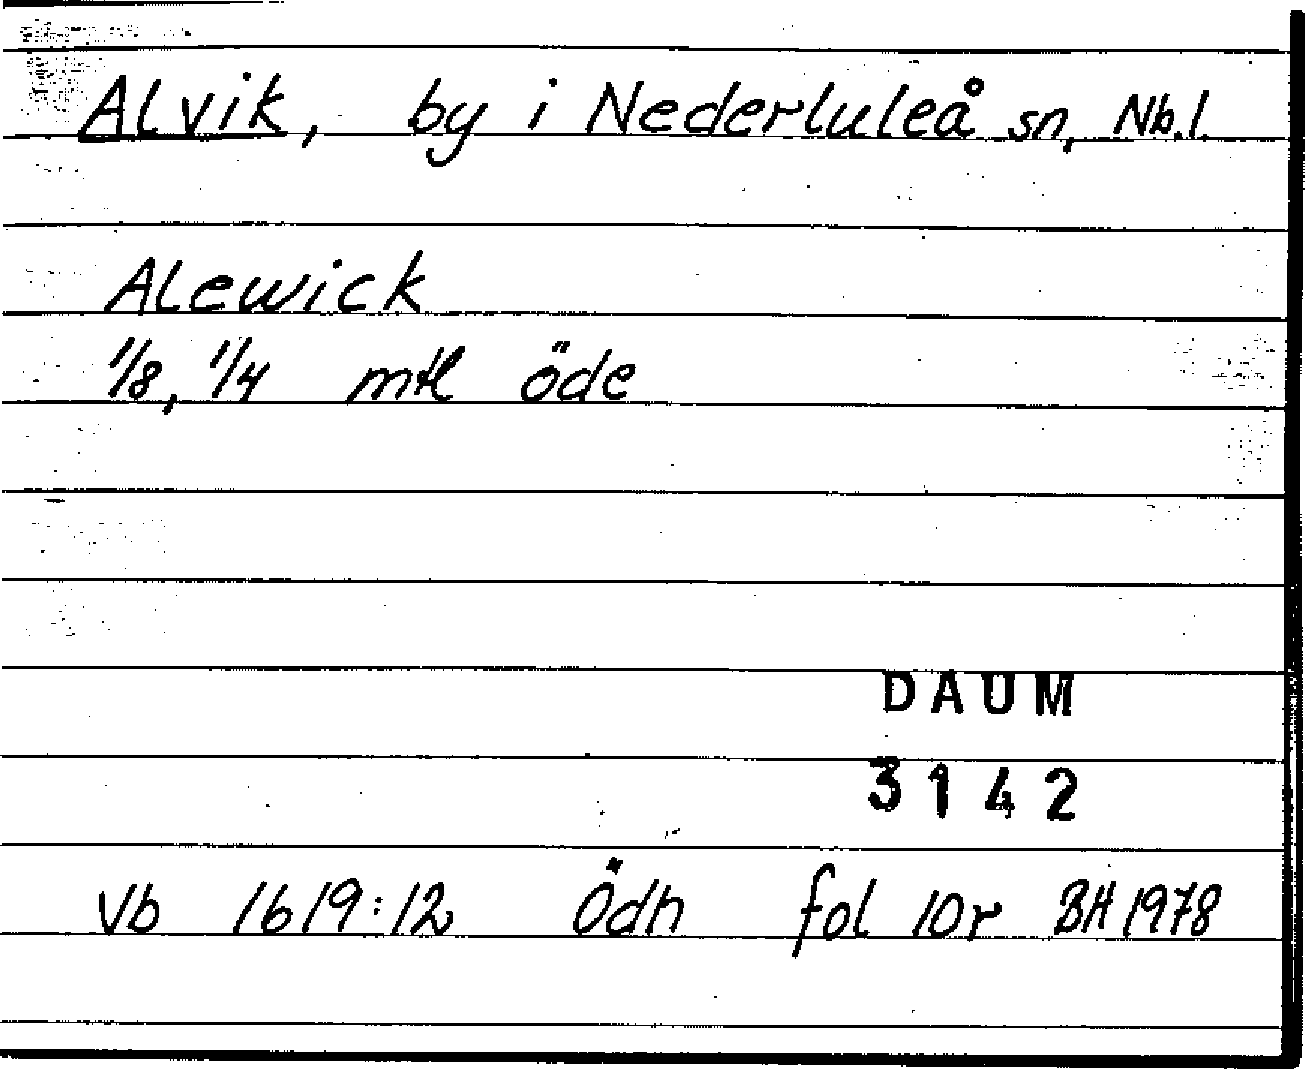 Alvik, by i Nederluleå sn, Nb.l.
Alewick
1/8, 1/4 mtl öde
DAUM
3142
Vb 1619:12 Ödh fol 10r BH 1978